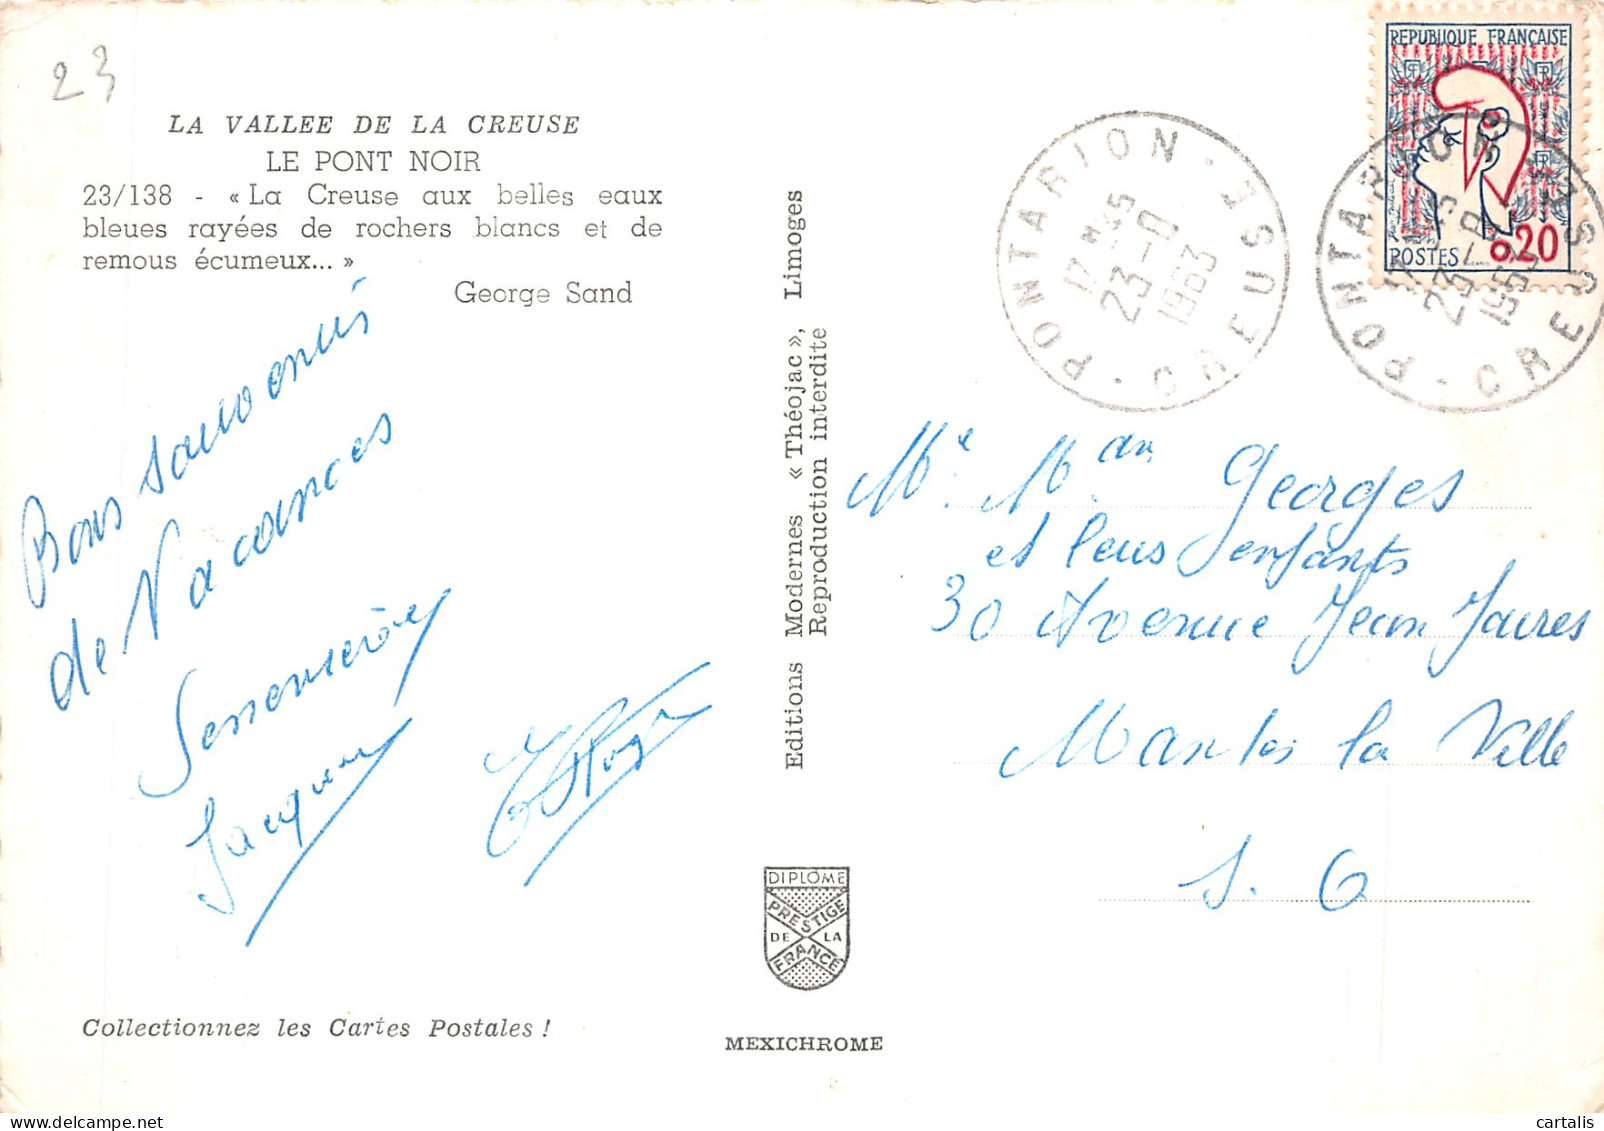 23
LA VALLEE DE LA CREUSE
LE PONT NOIR
23/138 - « La Creuse aux belles eaux
bleues rayées de rochers blancs et de
remous écumeux... »
George Sand
Bons souvenirs
de Vacances
Jacques
Collectionnez les Cartes Postales !
Editions Modernes « Théojac », Limoges
Reproduction interdite
DIPLOME
PRESTIGE
DE LA
FRANCE
MEXICHROME
PONTARION - CREUSE
17 H 45
23 - 1963
REPUBLIQUE FRANÇAISE
POSTES 0,20
PONTARION - CREUSE
Mr. Mme Georges
et leurs enfants
30 Avenue Jean Jaures
Mantes la Ville
S. O
cartalis